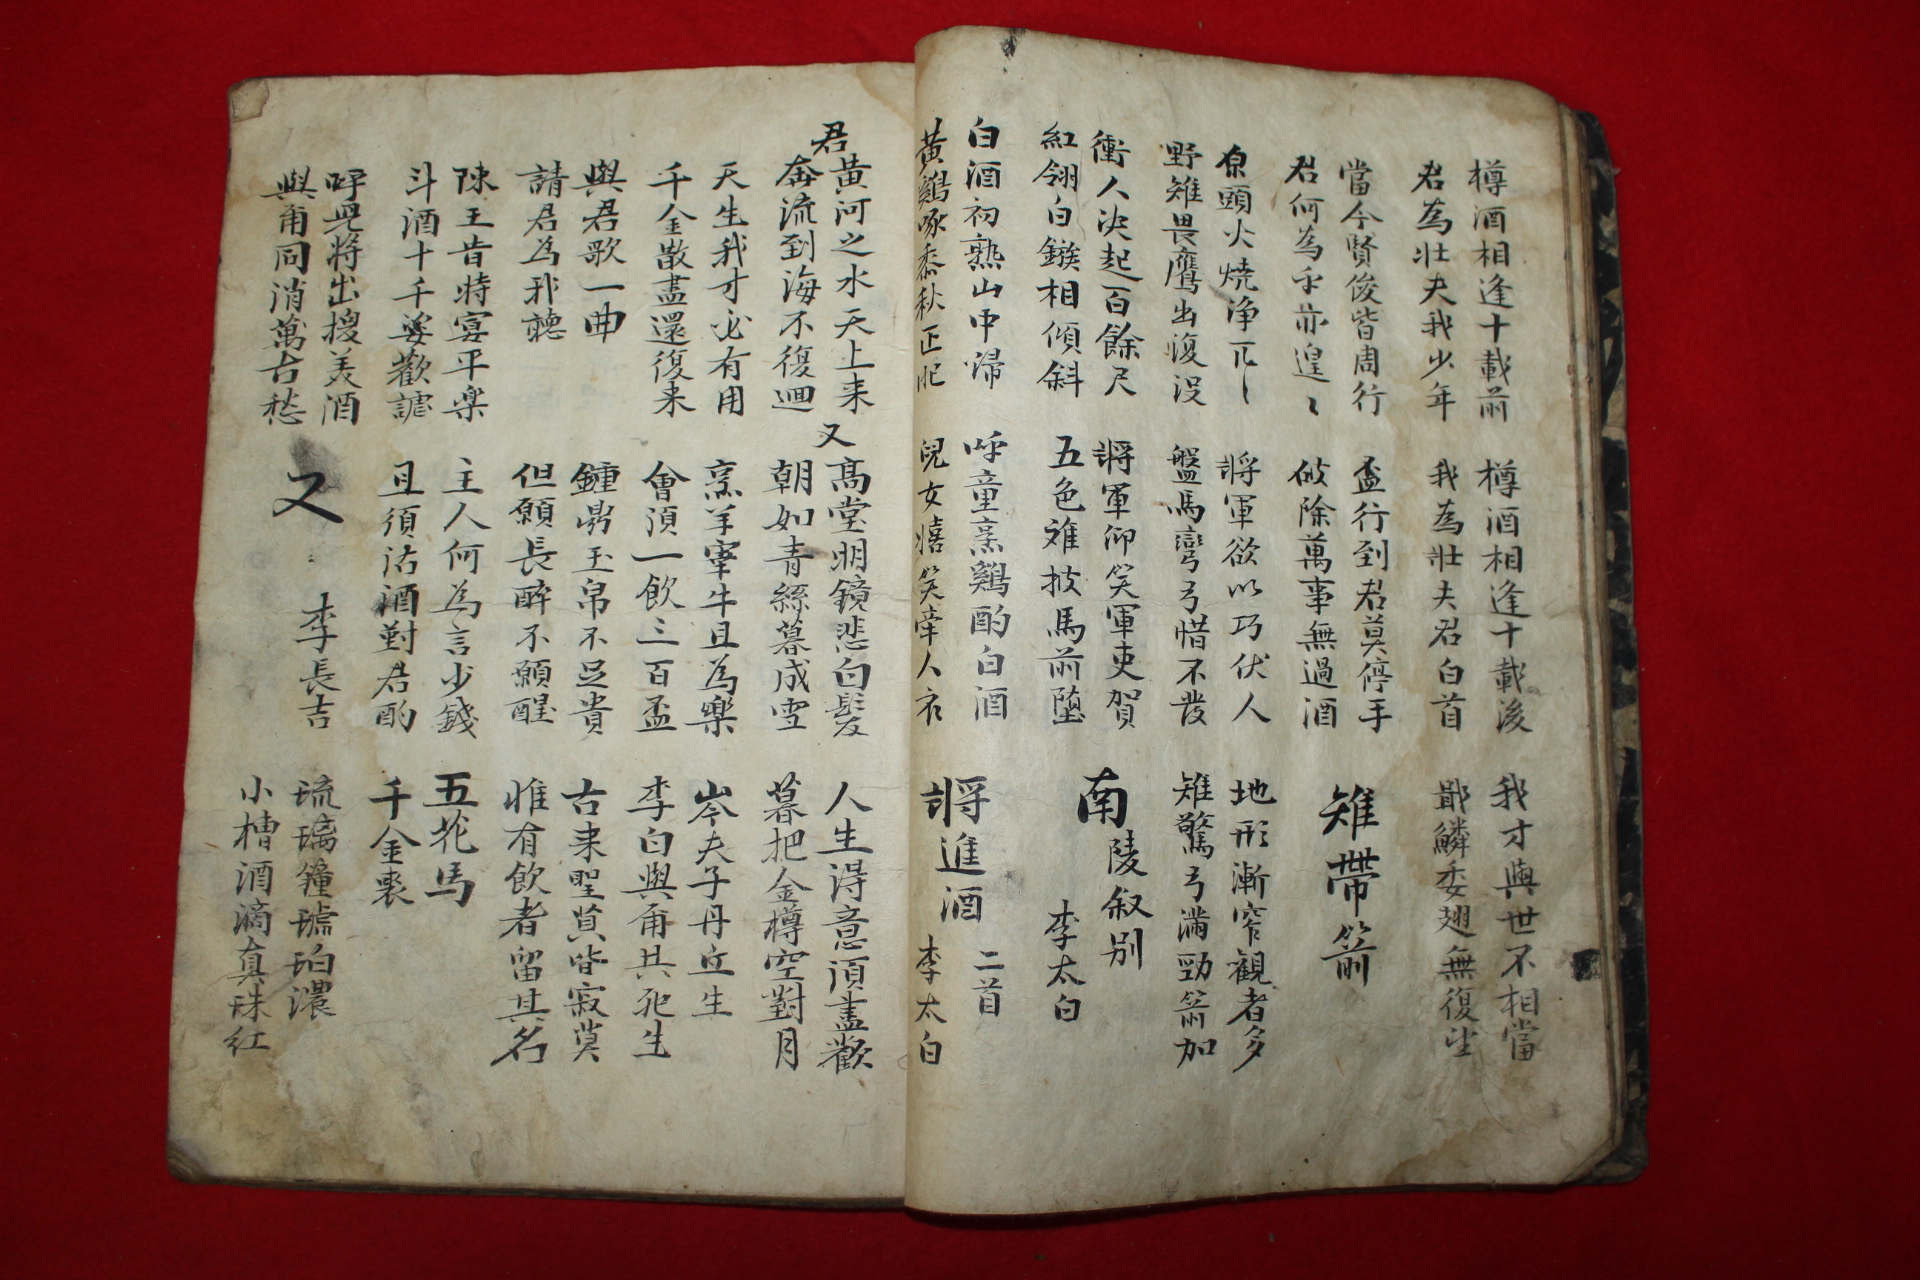 樽酒相逢十載前
君為壯夫我少年
樽酒相逢十載後
我為壯夫君白首
我才與世不相當
戢鱗委翅無復望
當今賢俊皆周行
君何為乎亦遑〻
盃行到君莫停手
破除萬事無過酒
雉帶箭
原頭火燒淨兀〻
野雉畏鷹出復没
將軍欲以巧伏人
盤馬彎弓惜不發
地形漸窄觀者多
雉驚弓滿勁箭加
衝人决起百餘尺
紅翎白鏃相傾斜
將軍仰笑軍吏賀
五色離披馬前墮
南陵叙别
李太白
白酒初熟山中歸
黃鷄啄黍秋正肥
呼童烹鷄酌白酒
兒女嬉笑牽人衣
將進酒 二首
李太白
君
黄河之水天上来
奔流到海不復廻
又
高堂明鏡悲白髮
朝如青絲暮成雪
人生得意湏盡歡
暮把金樽空對月
天生我才必有用
千金散盡還復来
烹羊宰牛且為樂
會湏一飲三百盃
岑夫子丹丘生
李白與爾共死生
與君歌一曲
請君為我聽
鍾鼎玉帛不足貴
但願長醉不願醒
古来聖賢皆寂莫
惟有飲者留其名
陳王昔時宴平樂
斗酒十千姿歡謔
主人何為言少錢
且須沽酒對君酌
五花馬
千金裘
呼兒將出換美酒
與爾同消萬古愁
又
李長吉
琉璃鐘琥珀濃
小槽酒滴真珠紅